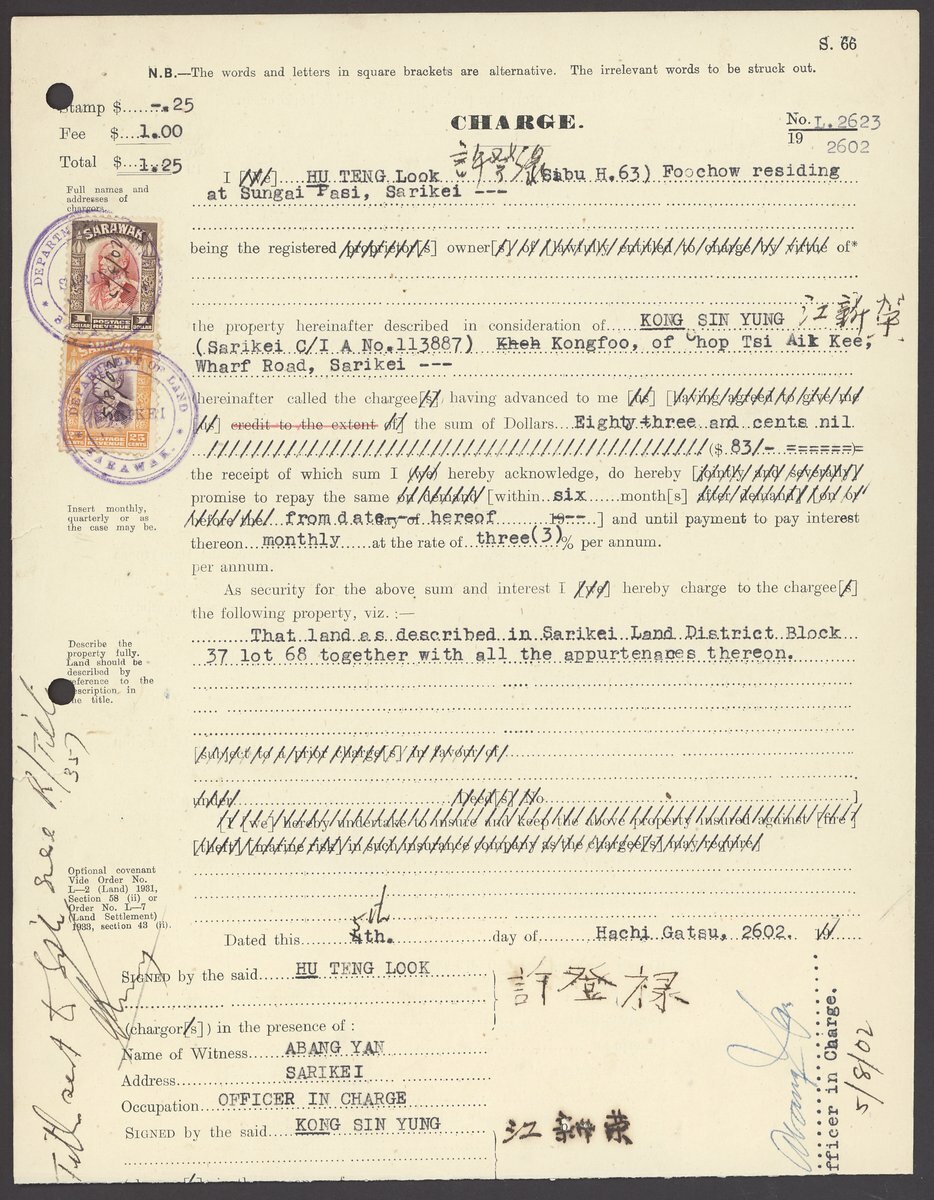 S. 66
N.B.—The words and letters in square brackets are alternative. The irrelevant words to be struck out.
Stamp $ -.25
Fee $ 1.00
Total $ 1.25
CHARGE.
No. L.2623
19 2602
Full names and
addresses of
chargors.
許登祿
I [we] HU TENG Look (Sibu H.63) Foochow residing
at Sungai Pasi, Sarikei ---
being the registered proprietor[s] owner[s] of [lawfully entitled to charge by virtue of*
SARAWAK
1 DOLLAR POSTAGE REVENUE 1 DOLLAR
DEPARTMENT OF LAND
SARIKEI
SARAWAK.
POSTAGE REVENUE 25 CENTS
江新荣
the property hereinafter described in consideration of KONG SIN YUNG
(Sarikei C/I A No.113887) Kheh Kongfoo, of Chop Tsi Aik Kee,
Wharf Road, Sarikei ---
(hereinafter called the chargee[s]) having advanced to me [us] [having agreed to give me
us] credit to the extent of] the sum of Dollars Eighty-three and cents nil
($ 83/- ======)=
the receipt of which sum I [we] hereby acknowledge, do hereby [jointly and severally]
promise to repay the same on demand [within six month[s] after demand] [on or
before the from date--- day of hereof 19-- ] and until payment to pay interest
thereon monthly at the rate of three(3)% per annum.
per annum.
Insert monthly,
quarterly or as
the case may be.
As security for the above sum and interest I [we] hereby charge to the chargee[s]
the following property, viz. :—
That land as described in Sarikei Land District Block
37 lot 68 together with all the appurtenances thereon.
Describe the
property fully.
Land should be
described by
reference to the
description in
the title.
[subject to a prior charge[s] in favour of
under Deed[s] No. ]
[I [we] hereby undertake to insure and keep the above property insured against [fire]
[theft] [marine risk] in such insurance company as the chargee[s] may require.
Optional covenant
Vide Order No.
L—2 (Land) 1931,
Section 58 (ii) or
Order No. L—7
(Land Settlement)
1933, section 43 (ii).
5th
Dated this 4th. day of Hachi Gatsu, 2602. 19
SIGNED by the said HU TENG LOOK
許登祿
(chargor[s]) in the presence of :
Name of Witness ABANG YAN
Address SARIKEI
Occupation OFFICER IN CHARGE
SIGNED by the said KONG SIN YUNG
江新荣
Officer in Charge.
5/8/02